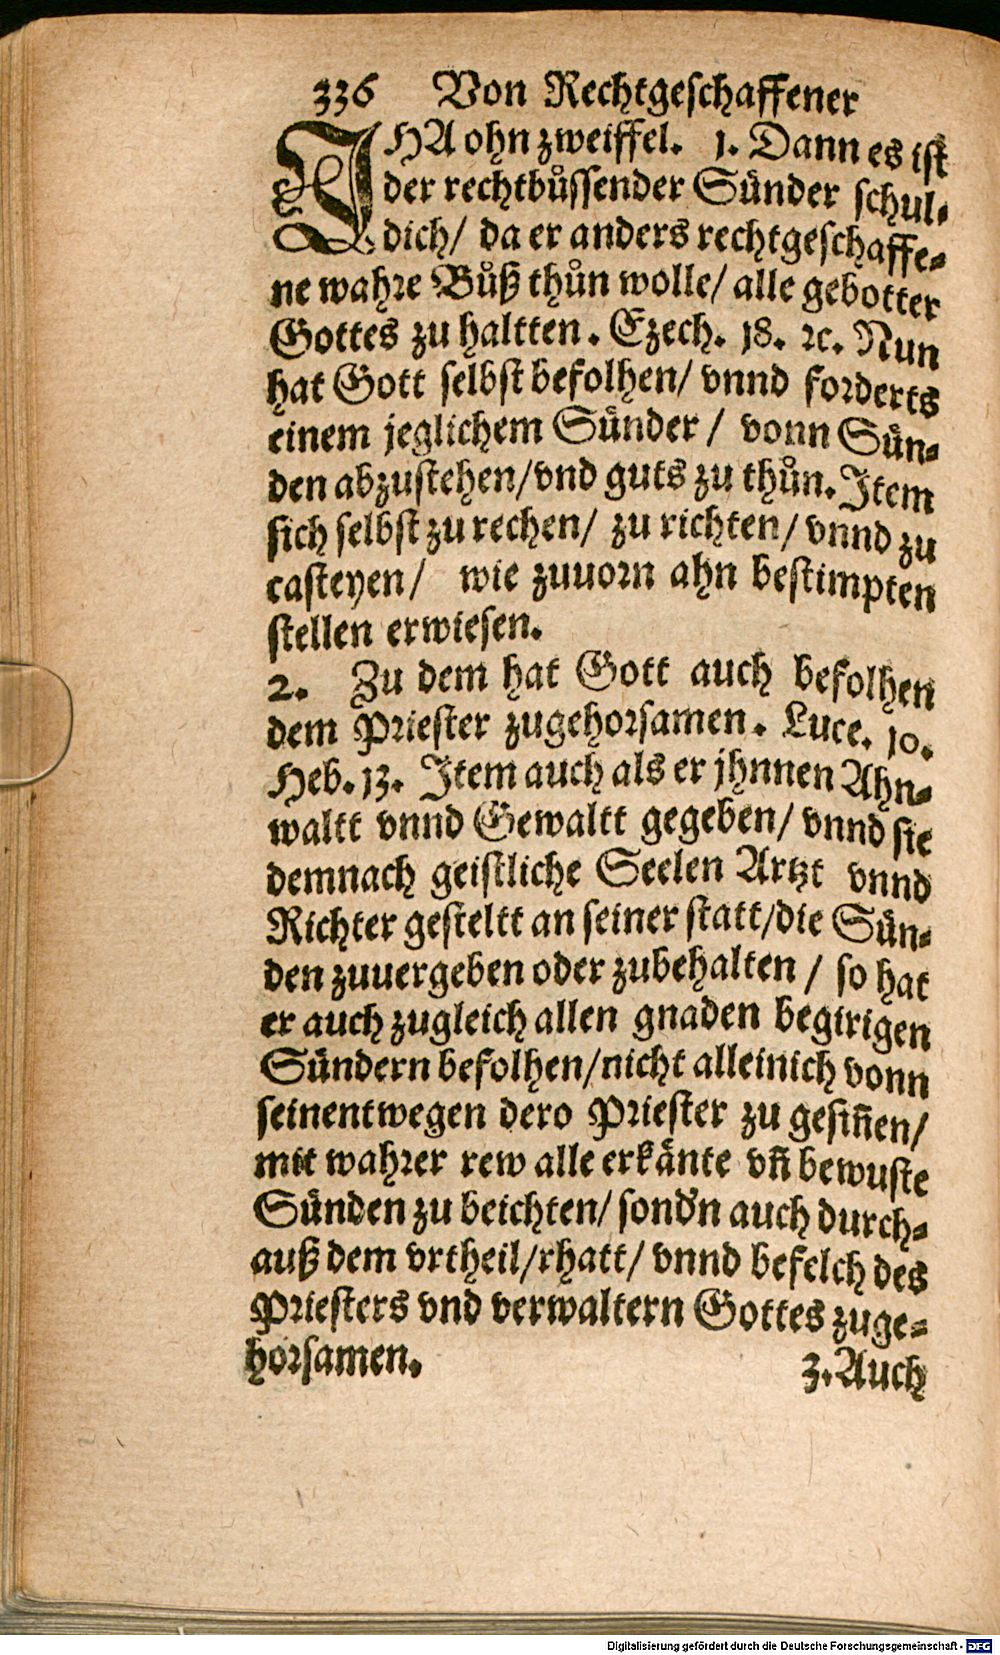 336 Von Rechtgeschaffener
JHA ohn zweiffel. 1. Dann es ist
der rechtbůssender Sünder schul-
dich/ da er anders rechtgeschaffe-
ne wahre Bůß thůn wolle/ alle gebotter
Gottes zu haltten. Ezech. 18. ꝛc. Nun
hat Gott selbst befolhen/ vnnd forderts
einem jeglichem Sünder / vonn Sün-
den abzustehen/vnd guts zu thůn. Jtem
sich selbst zu rechen/ zu richten/ vnnd zu
casteyen/ wie zuuorn ahn bestimpten
stellen erwiesen.
2. Zu dem hat Gott auch befolhen
dem Priester zugehorsamen. Luce. 10.
Heb. 13. Jtem auch als er jhnnen Ahn-
waltt vnnd Gewaltt gegeben/ vnnd sie
demnach geistliche Seelen Artzt vnnd
Richter gesteltt an seiner statt/die Sün-
den zuuergeben oder zubehalten / so hat
er auch zugleich allen gnaden begirigen
Sündern befolhen/nicht alleinich vonn
seinentwegen dero Priester zu gesiñen/
mit wahrer rew alle erkänte vñ bewuste
Sünden zu beichten/ sond'n auch durch-
auß dem vrtheil/rhatt/ vnnd befelch des
Priesters vnd verwaltern Gottes zuge-
horsamen.
3. Auch
Digitalisierung gefördert durch die Deutsche Forschungsgemeinschaft - DFG